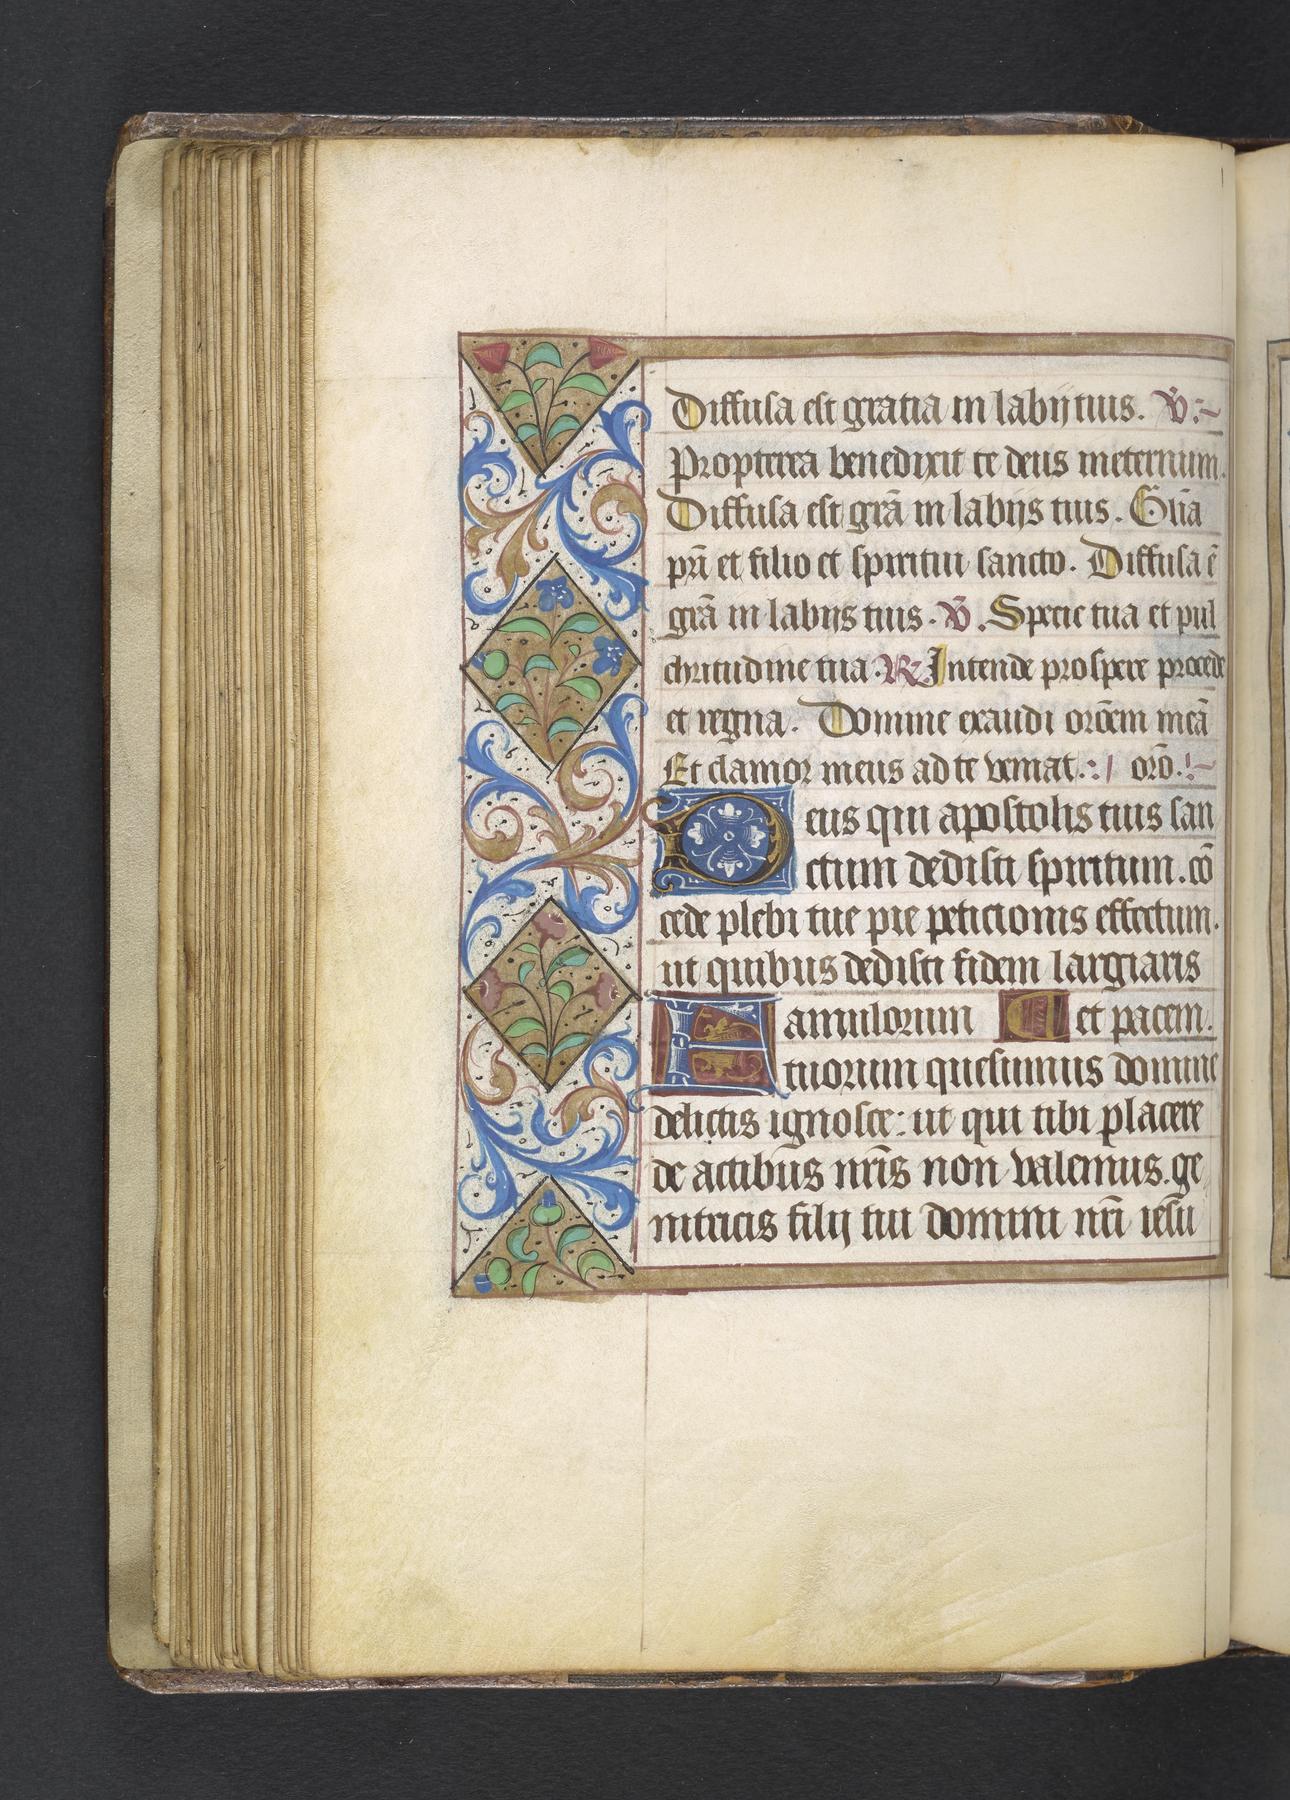 Diffusa est gratia in labijs tuis. V̄:~
Propterea benedixit te deus ineternum.
Diffusa est grā in labijs tuis. Glīa
pri̅ et filio et spiritui sancto. Diffusa ē
grā in labijs tuis. V̄. Specie tua et pul
chritudine tua. R Intende prospere procede
et regna. Domine exaudi orōem meā
Et clamor meus ad te veniat.:/ orō.!~
Deus qui apostolis tuis san
ctum dedisti spiritum. cō
cede plebi tue pie peticionis effectum.
ut quibus dedisti fidem largiaris
Famulorum et pacem.
tuorum quesumus domine
delictis ignosce: ut qui tibi placere
de actibus nr̄is non valemus. ge
nitricis filij tui domini nr̄i iesu